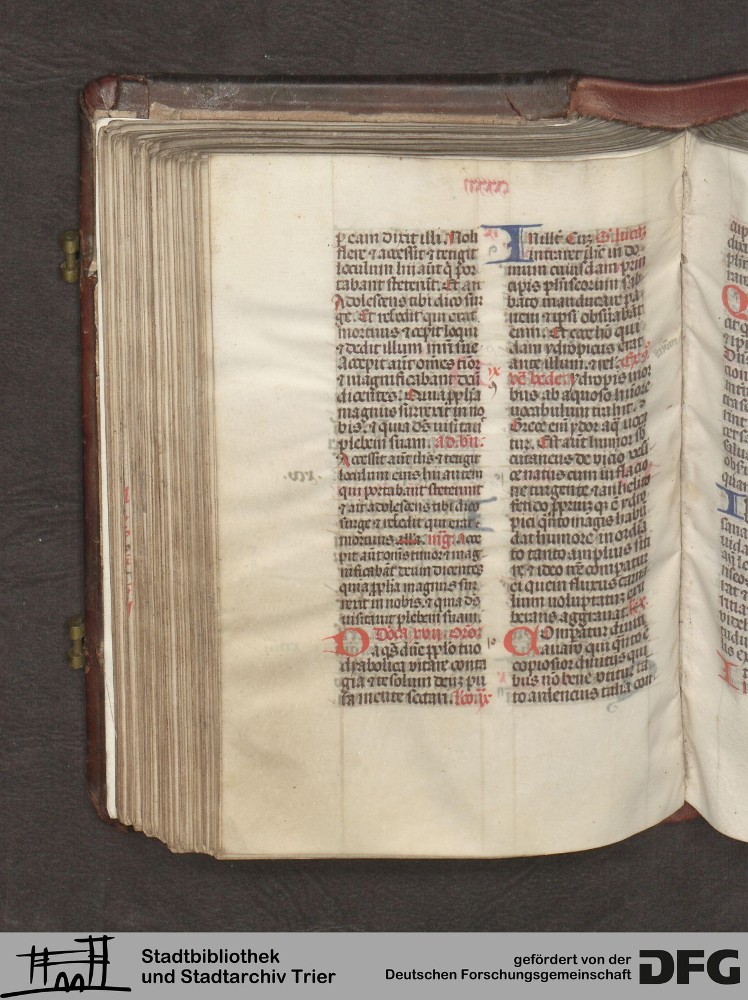 p eam dixit illi. Noli
flere ⁊ accessit ⁊ tetigit
loculum hii aūt q̇ por
tabant steterūt. Et ait
Adolescens tibi dico sur
ge. Et resedit qui erat
mortuus ⁊ cepit loqui
⁊ dedit illum mr̄i sue
Accepit aūt om̄es tīor
⁊ magnificabant deū
dicentes. Quia ꝓph̄a
magnus surrexit in no
bis. ⁊ quia ds̄ visitauit
plebem suam. ad bn̄.
Accessit aūt ih̄s ⁊ tetigit
loculum eius hii autem
qui portabant steterunt
⁊ ait adolescens tibi dico
surge ⁊ resedit qui erat
mortuus alla. mg̅. Acce
pit aūt om̄is timor ⁊ mag
nificabāt deum dicentes
quia ꝓph̄a magnus sur
rexit in nobis. ⁊ quia ds̄
visitauit plebem suam.
Dd̄ica xvii. or̄o
Da q̄s dn̄e pp̄lo tuo
dyabolica vitare conta
gia ⁊ te solum deum pu
ra mente sectari. lc̄o ix
In illo t̄. Cum
intraret ih̄c in do
mum cuiusdam prin
cipis phariseorum sab
bato manducare pa
nem ⁊ ipsi obseruabāt
eum. Et ecce hō qui
dam ydropicus erat
ante illum. ⁊ rel.
ven̄ bede. ydropis mor
bus ab aquoso humore
vocabulum trahit.
Grece enī ydor aq̄ uoca
tur. Est aūt humor sb
cutaneus de vicio vesi
ce natus cum inflacio
ne turgente ⁊ anhelito
fetido ꝓpriumq̄ ē ydro
pici q̄nto magis habū
dat humore inordīa
to tanto amplius siti
re ⁊ ideo recte compatur
ei quem fluxus carna
lium uoluptatum exu
berans aggrauat.
Comparatur diuiti
auaro qui q̄nto ē
copiosior diuitiis qui
bus nō bene vtitur ta
to ardencius talia con
Stadtbibliothek
und Stadtarchiv Trier
gefördert von der
Deutschen Forschungsgemeinschaft
DFG